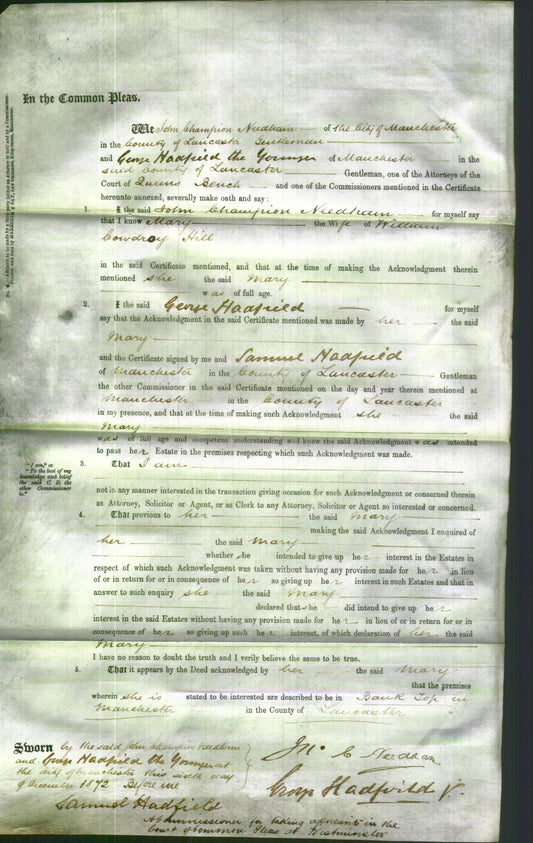 In the Common Pleas.
We John Champion Needham of the City of Manchester
in the County of Lancaster Gentleman
and George Hadfield the Younger of Manchester in the
said County of Lancaster Gentleman, one of the Attorneys of the
Court of Queens Bench and one of the Commissioners mentioned in the Certificate
hereunto annexed, severally make oath and say:
1. I the said John Champion Needham for myself say
that I know Mary the Wife of William
Cowdroy Hill
in the said Certificate mentioned, and that at the time of making the Acknowledgment therein
mentioned she the said Mary
was of full age.
2. I the said George Hadfield for myself
say that the Acknowledgment in the said Certificate mentioned was made by her the said
Mary
and the Certificate signed by me and Samuel Hadfield
of Manchester in the County of Lancaster Gentleman
the other Commissioner in the said Certificate mentioned on the day and year therein mentioned at
Manchester in the County of Lancaster
in my presence, and that at the time of making such Acknowledgment she the said
Mary
was of full age and competent understanding and knew the said Acknowledgment was intended
to pass her Estate in the premises respecting which such Acknowledgment was made.
"I am," or
"To the best of my
knowledge and belief
the said C. D. the
other Commissioner
is."
3. That I am
not in any manner interested in the transaction giving occasion for such Acknowledgment or concerned therein
as Attorney, Solicitor or Agent, or as Clerk to any Attorney, Solicitor or Agent so interested or concerned.
4. That previous to her the said Mary
making the said Acknowledgment I enquired of
her the said Mary
whether she intended to give up her interest in the Estates in
respect of which such Acknowledgment was taken without having any provision made for her in lieu
of or in return for or in consequence of her so giving up her interest in such Estates and that in
answer to such enquiry she the said Mary
declared that she did intend to give up her
interest in the said Estates without having any provision made for her in lieu of or in return for or in
consequence of her so giving up such her interest, of which declaration of her the said
Mary
I have no reason to doubt the truth and I verily believe the same to be true.
5. That it appears by the Deed acknowledged by her the said Mary
that the premises
wherein she is stated to be interested are described to be in Bank Top in
Manchester in the County of Lancaster
Sworn by the said John Champion Needham
and George Hadfield the Younger at
the City of Manchester this sixth day
of December 1872 Before me
Samuel Hadfield
A Commissioner for taking affidavits in the
Court of Common Pleas at Westminster
Jno. C Needham
George Hadfield Jr.